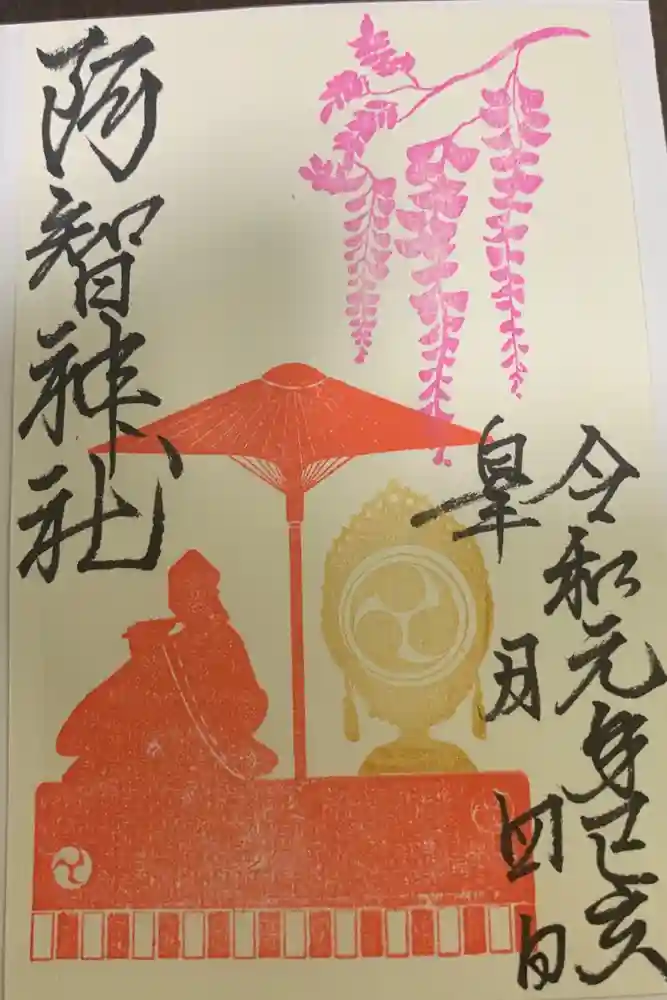 令和元年己亥
皐月四日
阿智神社